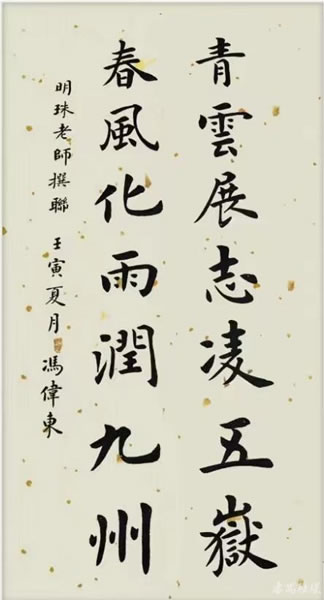 青雲展志凌五嶽
春風化雨潤九州
明珠老師撰聯 壬寅夏月 馮偉東